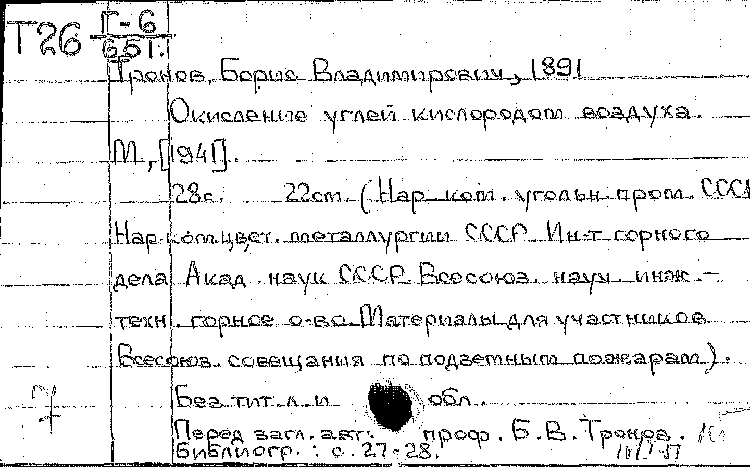 Т26 Г-6
651.
Тронов, Борис Владимирович, 1891
Окисление углей кислородом воздуха.
М., [1941].
28с. 22см. (Нар. ком. угольн. пром. СССР
Нар.ком.цвет. металлургии СССР Ин-т горного
дела Акад. наук СССР Всесоюз. науч. инж.-
техн. горное о-во. Материалы для участников
Всесоюз. совещания по подземным пожарам).
Без тит. л. и обл.
Перед загл. авт. проф. Б.В. Тронов.
Библиогр.: с. 27-28.